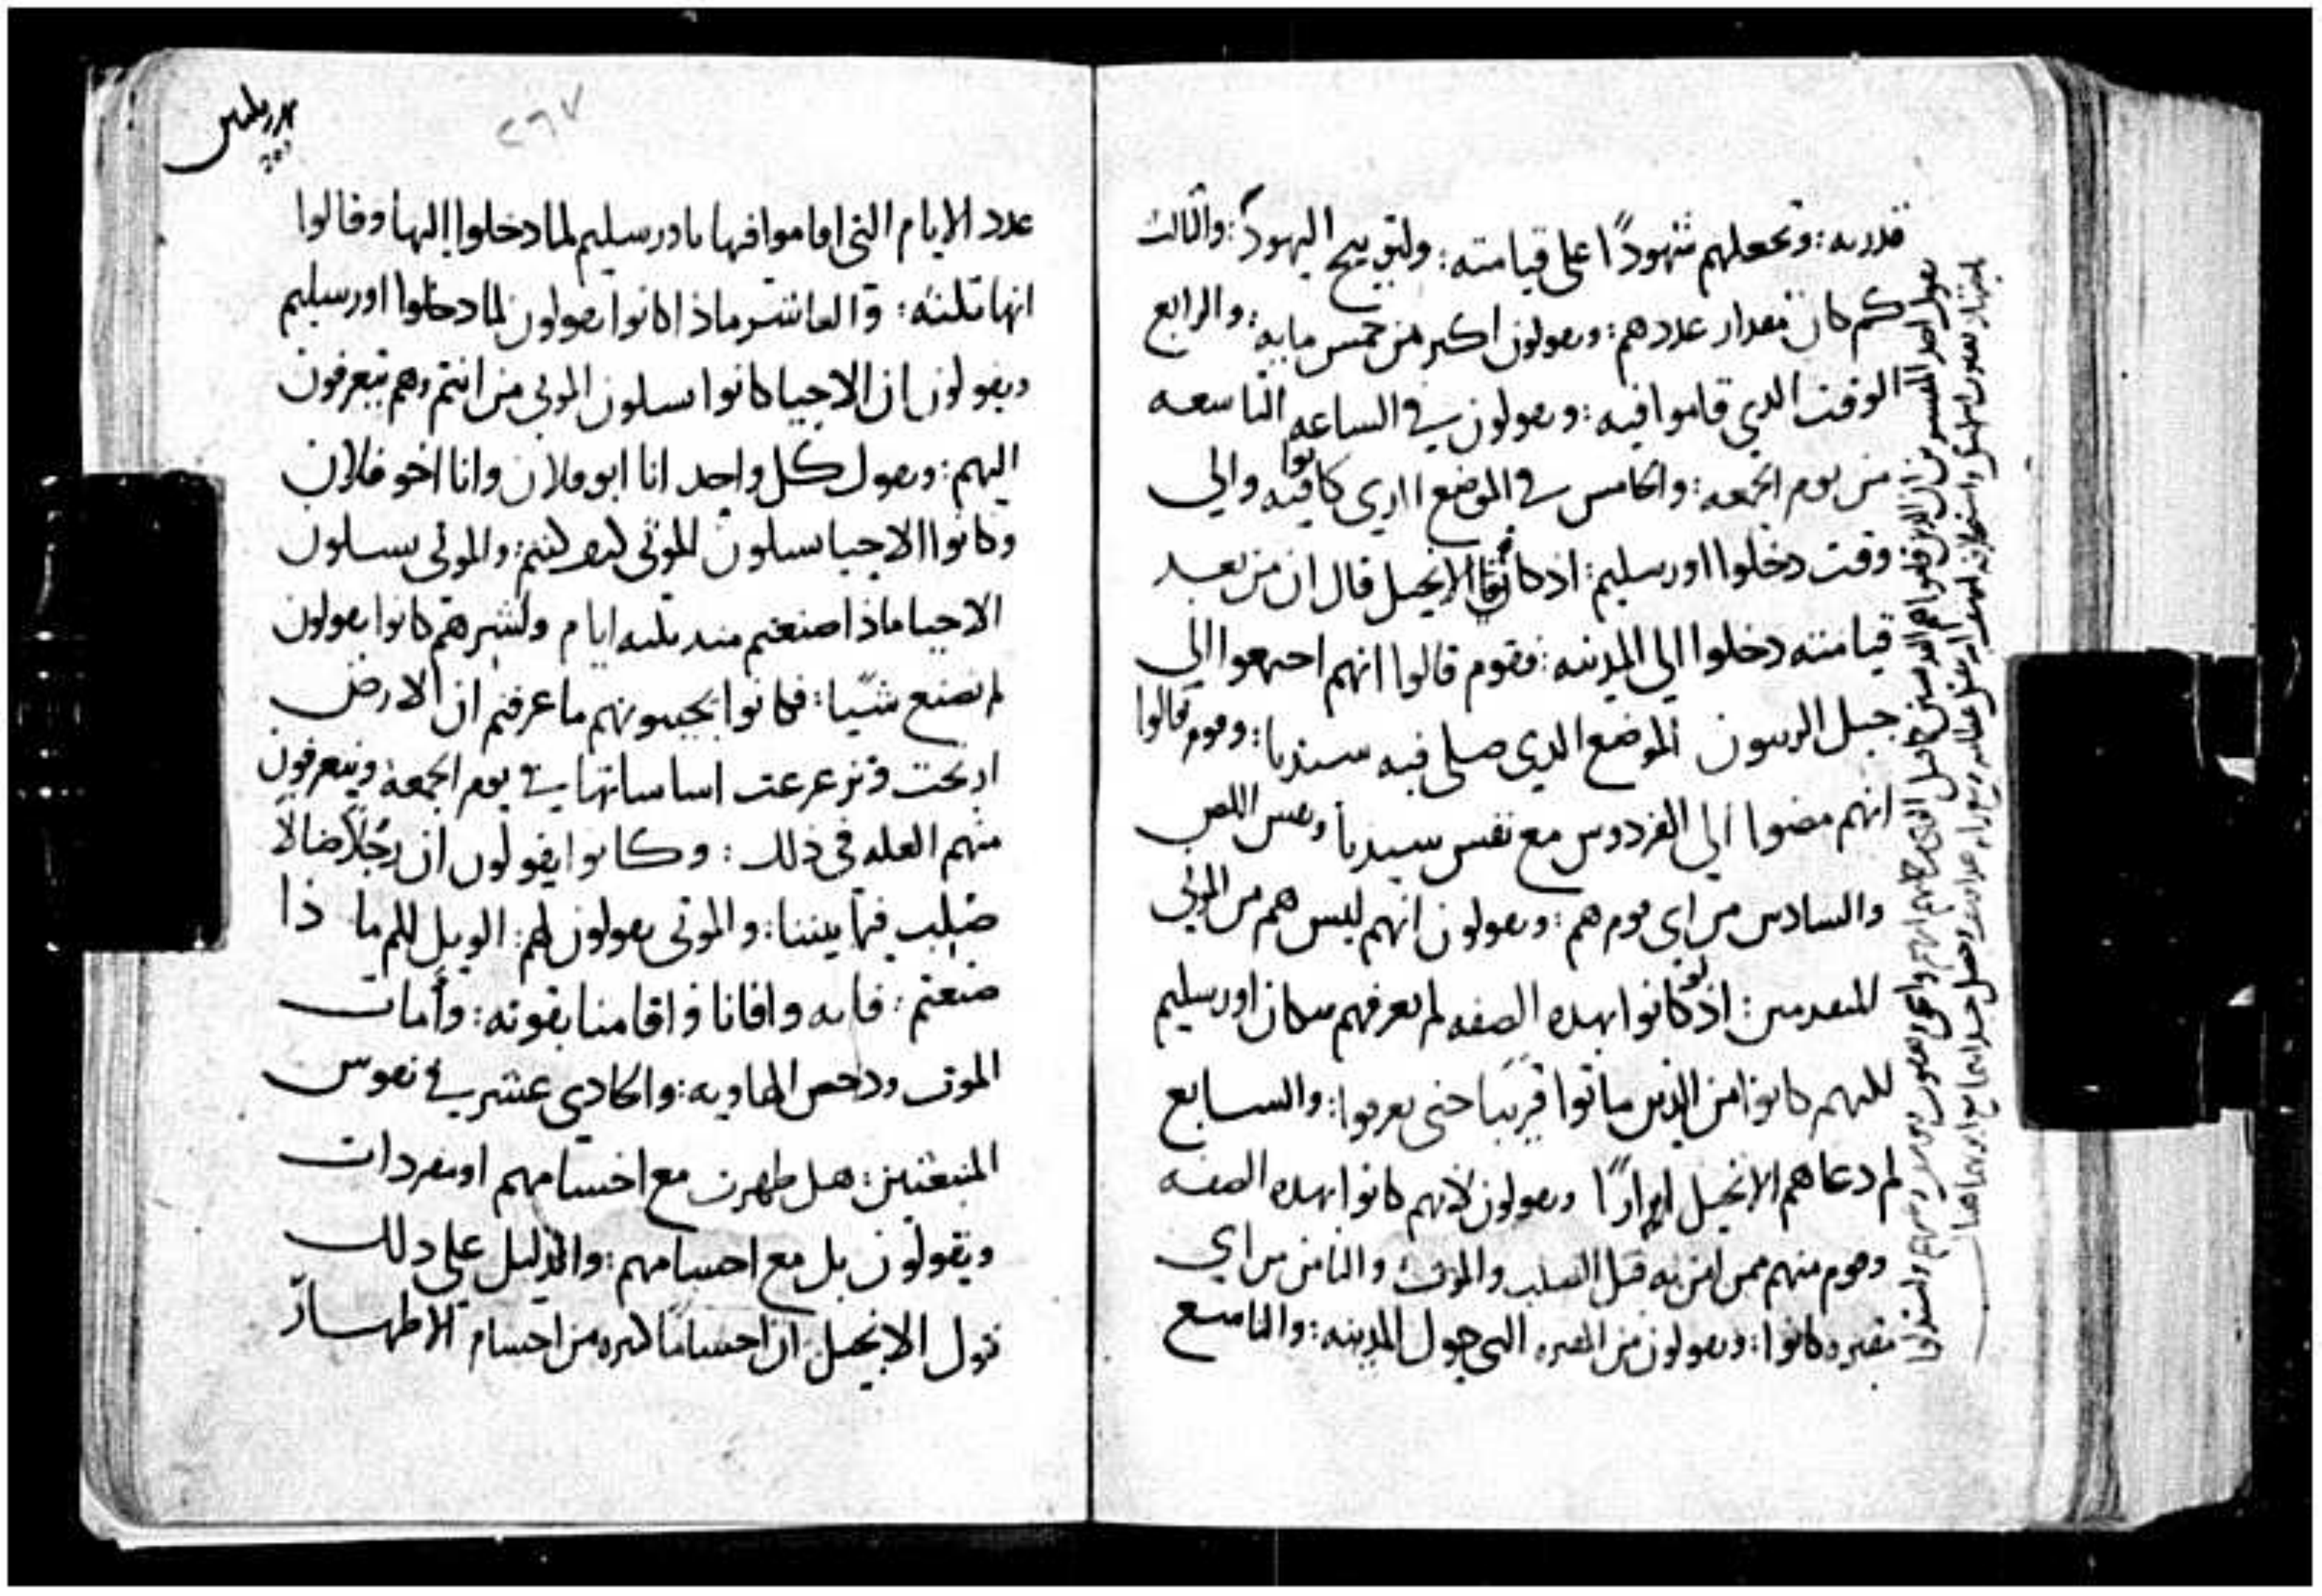 قدرته : وتجعلهم شهودًا على قيامته : ولتوبيخ اليهود : والثالث
كم كان مقدار عددهم : ويقولون اكثر من خمس مايه : والرابع
الوقت الدي قاموا فيه : ويقولون في الساعه التاسعه
من يوم الجمعه : والخامس في الموضع الدي كانوا فيه والي
وقت دخلوا اورسليم : اذ كان الانجيل قال ان من بعد
قيامته دخلوا الي المدينه : فقوم قالوا انهم اجتمعوا الي
جبل الزيتون الموضع الدي صلى فيه سيدنا : وقوم قالوا
انهم مضوا الي الفردوس مع نفس سيدنا ونفس اللص
والسادس من اي قوم هم : ويقولون انهم ليس هم من الموتي
المتقدمين : اذ كانوا بهده الصفه لم يعرفهم سكان اورسليم
لكنهم كانوا من الذين ماتوا قريبًا حتى يعرفوا : والسابع
لم دعاهم الانجيل ابرارًا ويقولون لانهم كانوا بهده الصفه
وقوم منهم ممن امن به قبل الصلب والموت والثامن من اي
مقبره كانوا : ويقولون من المقبره التي حول المدينه : والتاسع
يقول احد المفسرين ان الذين قاموا هم القديسين
٢٦٧
عدد الايام التي اقاموا فيها باورسليم لما دخلوا اليها وقالوا
انها تلته : والعاشر ماذا كانوا يقولون لما دخلوا اورسليم
ويقولون ان الاحيا كانوا يسلون الموتي من انتم وهم يتعرفون
اليهم : ويقول كل واحد انا ابو فلان وانا اخو فلان
وكانوا الاحيا يسلون للموتي كيف كنتم : والموتي يسلون
الاحيا ماذا صنعتم مند تلته ايام واكثرهم كانوا يقولون
لم نصنع شيًا : فكانوا يجيبونهم ما عرفتم ان الارض
ارتجت وتزعزعت اساساتها في يوم الجمعه ويتعرفون
منهم العله في ذلك : وكانوا يقولون ان رجلًا ضالًا
صلب فيما بيننا : والموتي يقولون لهم : الويل لكم ما ذا
صنعتم : فانه وافانا واقامنا بقوته : وأمات
الموت ودحض الهاويه : والحادي عشر في نفوس
المنبعثين : هل ظهرت مع اجسامهم او مفردات
ويقولون بل مع اجسامهم : والدليل على دلك
قول الانجيل ان اجسامًا كثيره من اجسام الاطهار